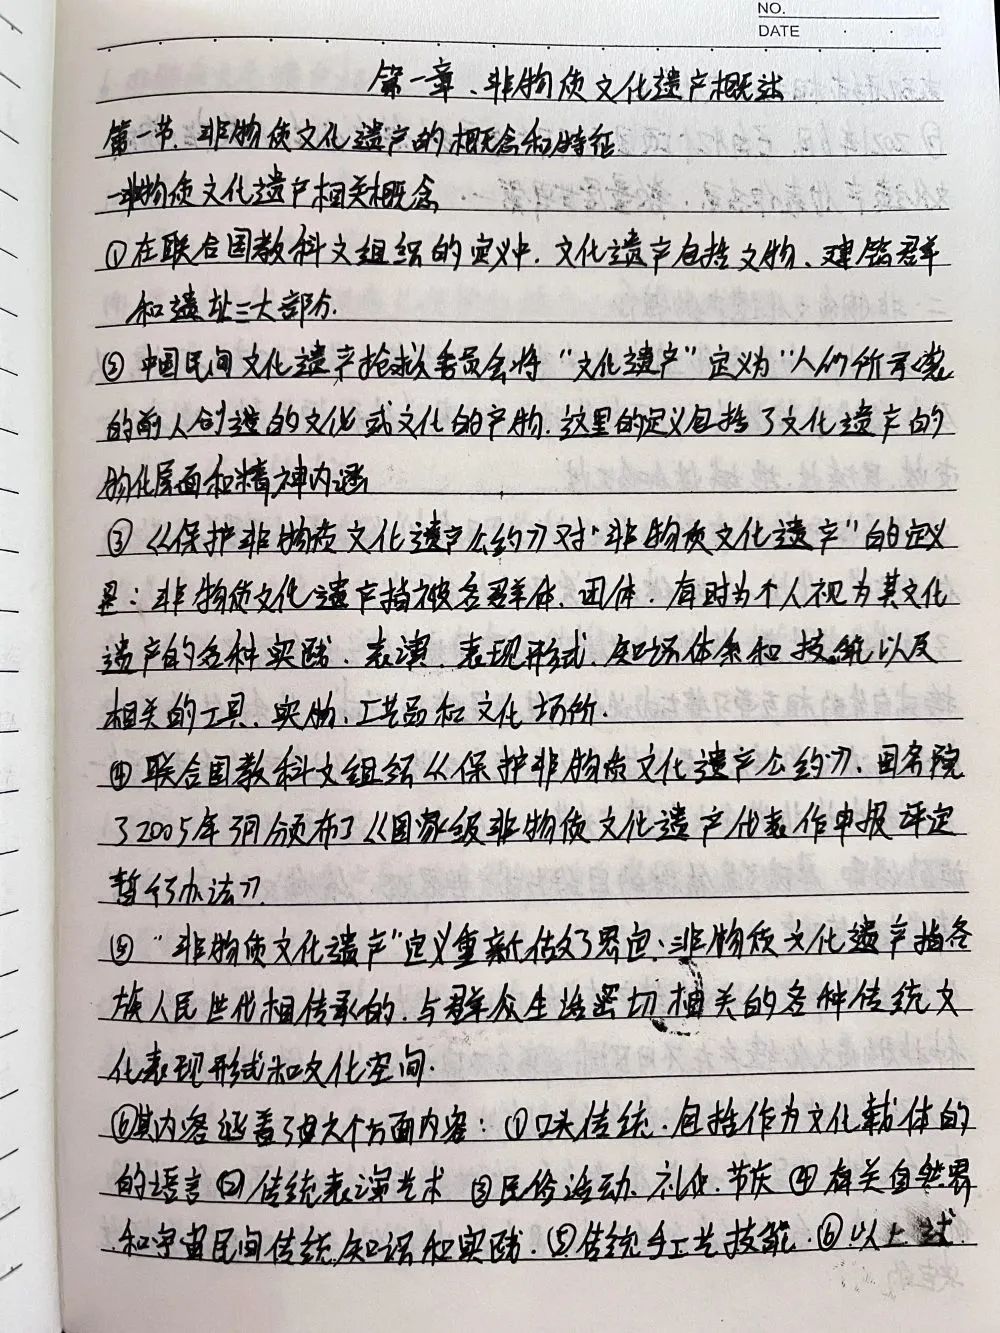 NO.
DATE
第一章、非物质文化遗产概述
第一节、非物质文化遗产的概念和特征
一、非物质文化遗产相关概念
①在联合国教科文组织的定义中、文化遗产包括文物、建筑群
和遗址三大部分.
② 中国民间文化遗产抢救委员会将“文化遗产”定义为“人们所承袭
的前人创造的文化或文化的产物.这里的定义包括了文化遗产的
物化层面和精神内涵
③《保护非物质文化遗产公约》对“非物质文化遗产”的定义
是：非物质文化遗产指被各群体、团体.有时为个人视为其文化
遗产的各种实践、表演、表现形式、知识体系和技能以及
相关的工具、实物、工艺品和文化场所.
④ 联合国教科文组织《保护非物质文化遗产公约》、国务院
了2005年3月颁布了《国家级非物质文化遗产代表作申报评定
暂行办法》
⑤“非物质文化遗产”定义重新做了界定、非物质文化遗产指各
族人民世代相传承的.与群众生活密切相关的各种传统文
化表现形式和文化空间.
⑥其内容涵盖了六个方面内容：①口头传统、包括作为文化载体的
的语言②传统表演艺术 ③民俗活动、礼仪、节庆④有关自然界
和宇宙民间传统知识和实践.⑤传统手工艺技能.⑥以上